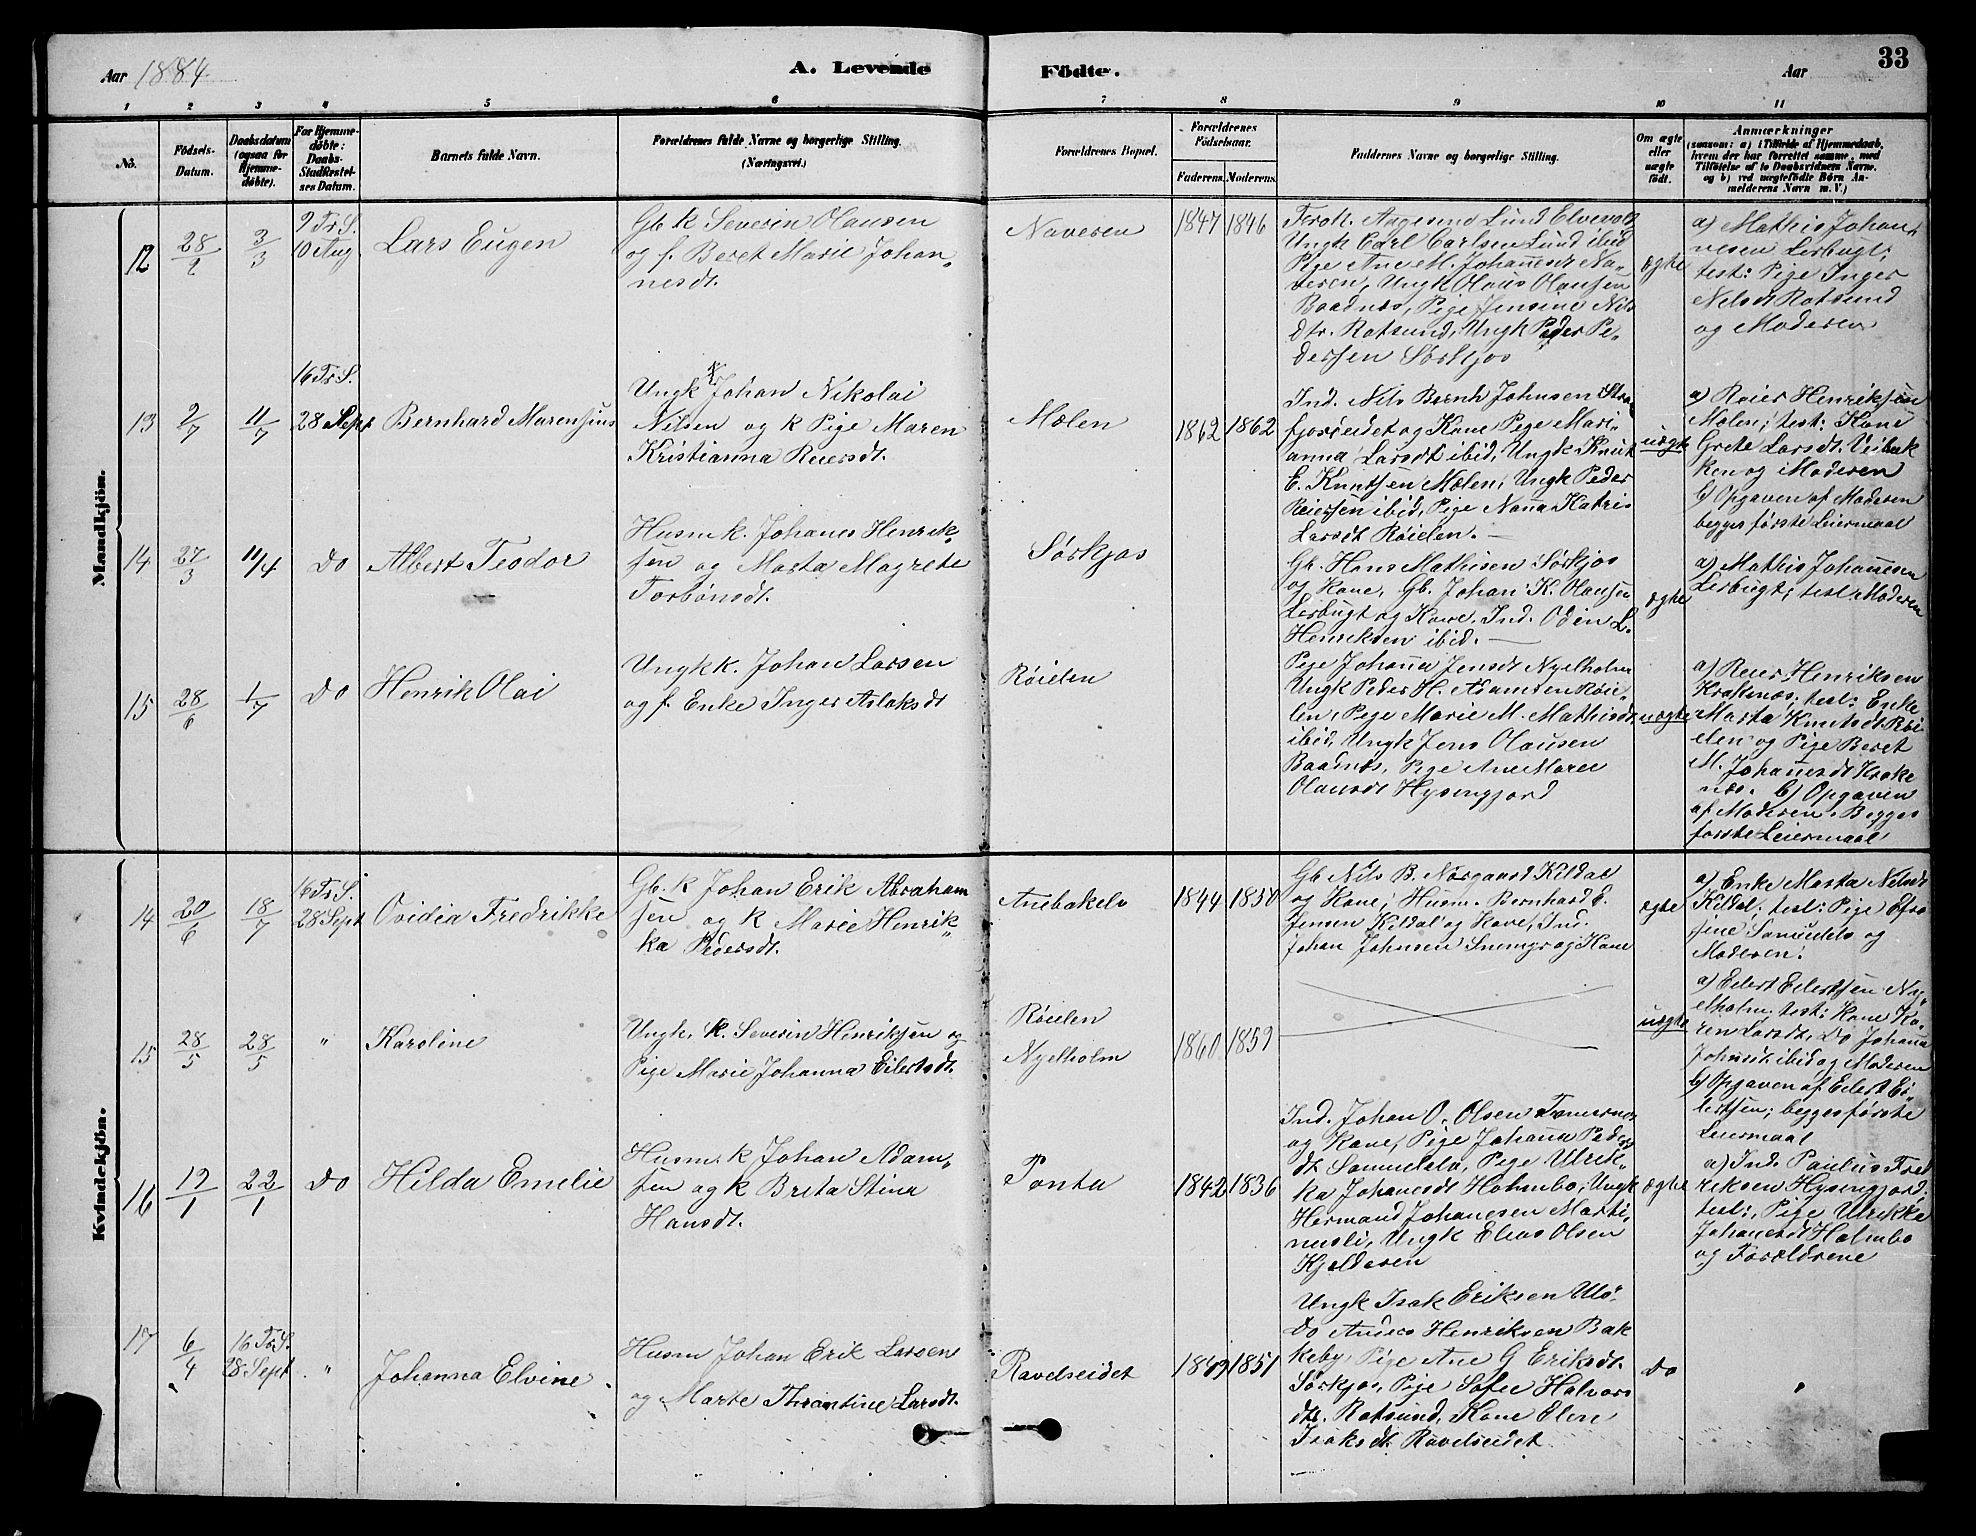 Aar 1884.
A. Levende Födte.
Aar
33
1 2 3 4 5 6 7 8 9 10 11
No.
Födsels-Datum.
Daabsdatum (ogsaa for Hjemmedøbte).
For Hjemmedøbte: Daabs-Stadfæstelses Datum.
Barnets fulde Navn.
Forældrenes fulde Navne og borgerlige Stilling. (Næringsvei.)
Forældrenes Bopæl.
Forældrenes Födselsaar.
Faderens. Moderens.
Faddernes Navne og borgerlige Stilling.
Om ægte eller uægte født.
Anmærkninger
(saasom: a) i Tilfælde af Hjemmedaab, hvem der har forrettet samme, med Tilföielse af to Daabsvidners Navne, og b) ved uægtefødte Börn Anmelderens Navn m. V.)
Mandkjön.
12
3/3
9 Tr. S.
10 Aug.
Lars Eugen
Gb k Severin Olausen
og f. Beret Marie Johan„
nesdt.
Naveren
1847 1846
Ungk Carl Carlsen Lund ibid
Pige Ane M. Johannesdt Na„
veren, Ungk Olaus Olausen
Baadnæs, Pige Jensine Nils
dtr. Rotsund, Ungk Peder Pe„
dersen Sørkjos
ægte
a) Mathis Johan„
nesen Lerbugt;
test: Pige Inger
Nelsdt Rotsund
og Moderen
13
2/7
11/7
16 Tr. S.
28 Sept
Bernhard Marensius
Ungk Johan Nikolai
Nilsen og k Pige Maren
Kristianna Reiersdt.
Molen
1862 1862
Ind. Nils Bernh Johnsen
og Kone Pige Mari„
anna Larsdt ibid, Ungk Knut
E. Knutsen Molen, Ungk Peder
Reiersen ibid, Pige Nanna
Larsdt Røielen.
uægte
a) Reier Henriksen
Molen; test: Kone
Grete Larsdt. Veibak
ken og Moderen
b) Opgaven af Moderen
begges første Leiermaal
14
27/3
11/4
do
Albert Teodor
Husm k. Johanes Henrik„
sen og Marta Magrete
Torbønsdt.
Sørkjos
Gb. Hans Mathisen Sørkjos
og Kone, Gb. Johan K. Olausen
Lerbugt og Kone, Ind. Odin L.
Henriksen ibid.
ægte
a) Mathis Johannesen
Lerbugt; test. Moderen
15
28/6
1/7
do
Henrik Olai
Ungk k. Johan Larsen
og f. Enke Inger Aslaksdt
Røielen
Pige Johanna Jensdt Nyelholm
Ungk Peder H. Adamsen Røie„
len, Pige Marie M. Mathisdt,
ibid, Ungk Jens Olausen
Baadnæs, Pige Ane Marie
Olausdt Hysingjord
uægte
a) Reier Henriksen
Kraknæs; test: Enke
Marta Knutsdt Røi
elen og Pige Beret
M. Johannesdt Krake
næs. b) Opgaven
af Moderen. Begges
første Leiermaal
Kvindekjön.
14
20/6
18/7
16 Tr. S.
28 Sept
Ovidia Fredrikke
Gb. k Johan Erik Abraham
sen og k Marie Henrik„
ka Pedersdt.
1844 1850
Gb Nils B. Norgaard Kildal
og Kone; Husm. Bernhard E.
Jensen Kildal og Kone, Ind.
Johan Johnsen og Kone
ægte
a) Enke Marta Nelsdt
Kildal; test: Pige Efro
sine Samuels og
Moderen.
15
28/5
28/5
"
Karoline
Ungk. k. Severin Henriksen og
Pige Marie Johanna Eilertsdt.
Røielen
Nyelholm
1860 1859
uægte
a) Eilert Eilertsen Ny„
elholm, test: Kone Ka„
ren Larsdt, Do Johana
Johnsdt ibid og Moderen
b) Opgaven af Eilert Ei„
lertsen; begges første
Leiermaal
16
19/1
22/1
do
Hilda Emelie
Husm. k Johan Adam„
sen og k Brita Stina
Hansdt.
Ponta
1842 1836
Ind. Johan O. Olsen
og Kone, Pige Johanna Peders
dt. Samuelelv, Pige Ulrik„
ka Johanesdt Holmbo; Ungk
Hermand Johanesen Marti„
nusli, Ungk Elias Olsen
Kjelderen
ægte
a) Ind. Paulus Fred
riksen Hysingjord.
test:, Pige Ulrikke
Johanesdt Holmbo
og Forældrene
17
6/4
16 Tr. S.
28 Sept
"
Johanna Elvine.
Husm Johan Erik Larsen
og Marte Thrantine Larsdt.
Ravelseidet
1849 1851
Ungk Isak Eriksen Ulø„
Do Anders Henriksen Bak„
keby, Pige Ane G Eriksdt.
Sørkjos, Pige Sofie Halvors
dtr. Rotsund, Kone Elen
Isaksdt. Ravelseidet.
do